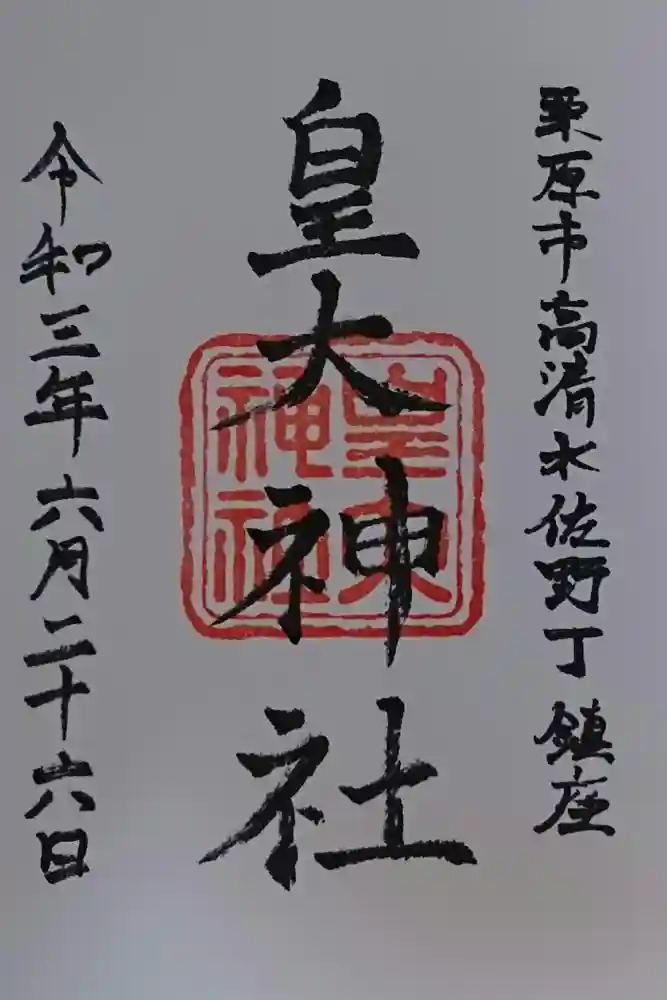 栗原市高清水佐野丁 鎮座
皇大神社
皇大神社
令和三年六月二十六日